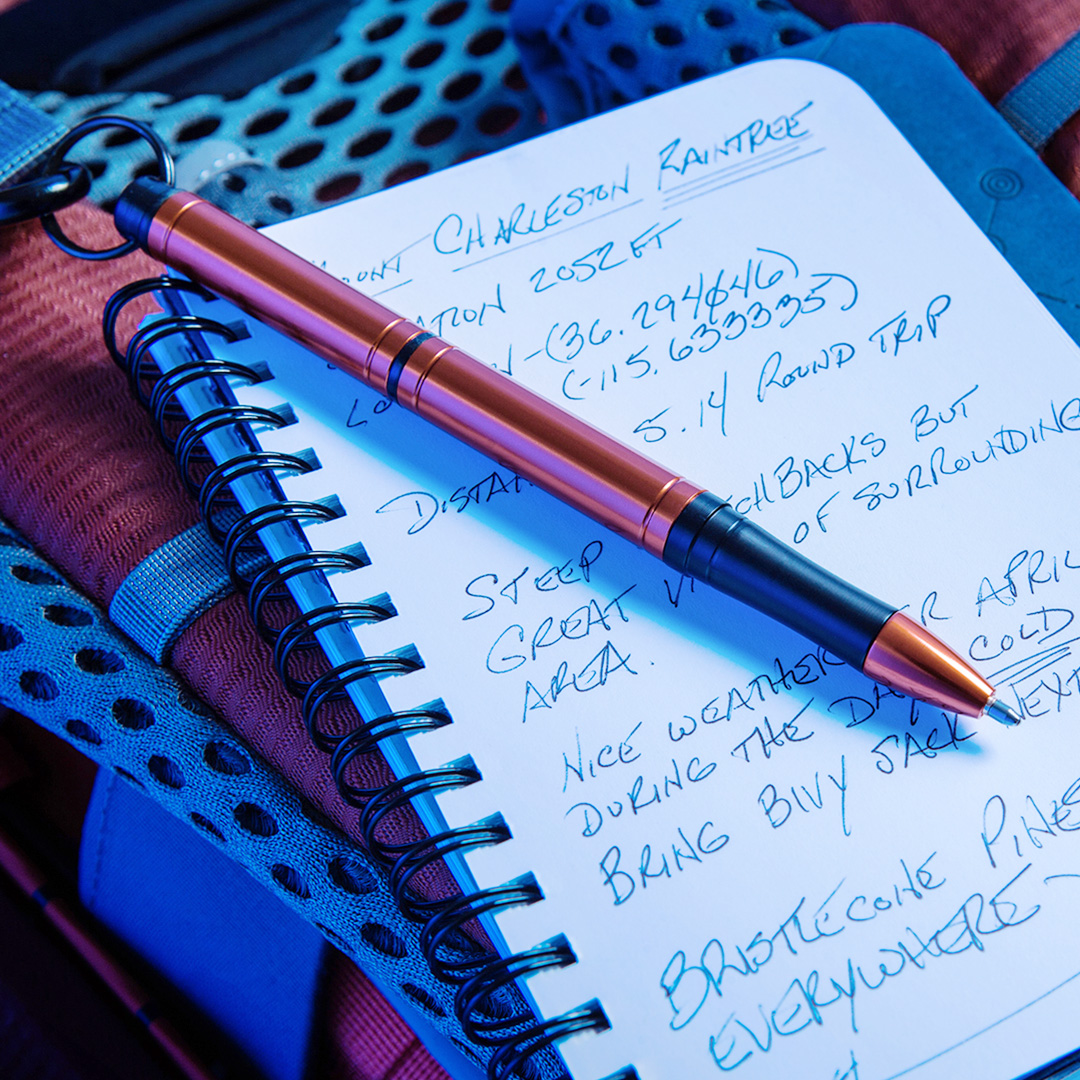 MOUNT CHARLESTON RAINTREE
ATION 2052 FT
N - (36.294646)
LO (-115.633335)
DISTAN 5.14 ROUND TRIP
STEEP CHBACKS BUT
GREAT VI OF SURROUNDING
AREA.
NICE WEATHER R APRIL
DURING THE DAY COLD
BRING BIVY SACK NEXT
BRISTLECONE PINES
EVERYWHERE